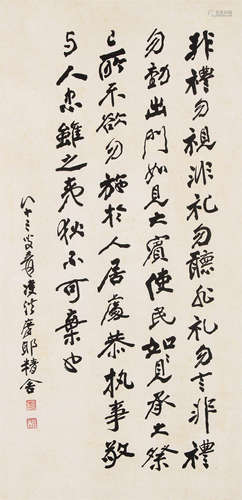 非禮勿視非礼勿聽非礼勿言非禮
勿動出門如見大賓使民如見承大祭
己所不欲勿施於人居處恭执事敬
与人忠雖之夷狄不可棄也
八十三叟爰漫信摩耶精舍